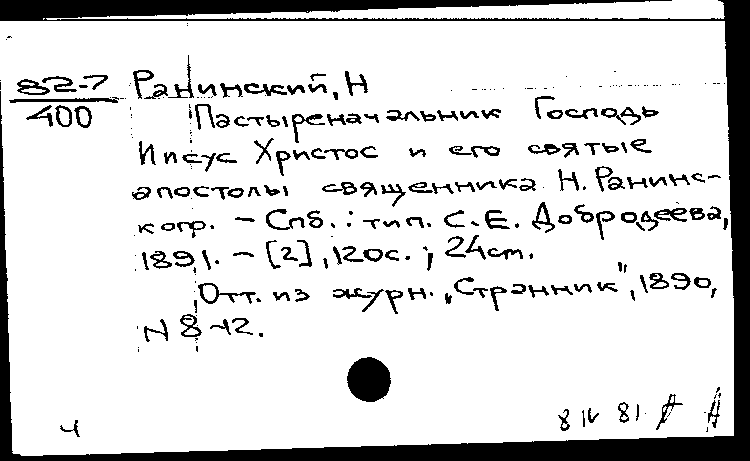 82-7 Ранинский, Н
400
Пастыреначальник Господь
Иисус Христос и его святые
апостолы священника Н. Ранинс-
кого. - Спб. : тип. С.Е. Добродеева,
1891. - [2], 120с. ; 24см.
Отт. из журн. „Странник", 1890,
N 8-12.
4 8 IV 81